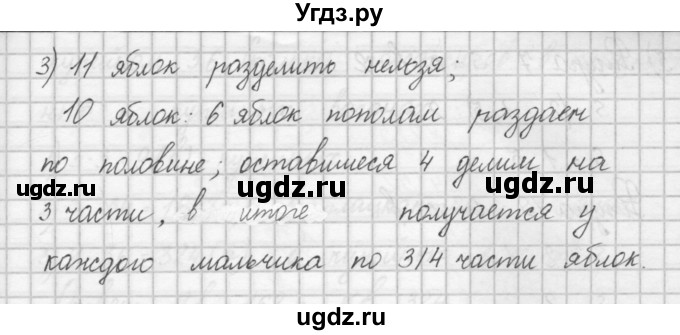 Угдз.ру
3) 11 яблок разделить нельзя;
10 яблок: 6 яблок пополам раздаем
по половине; оставшиеся 4 делим на
ugdz.ru ugdz.ru ugdz.ru
3 части, в итоге получается у
каждого мальчика по 3/4 части яблок.
ugdz.ru